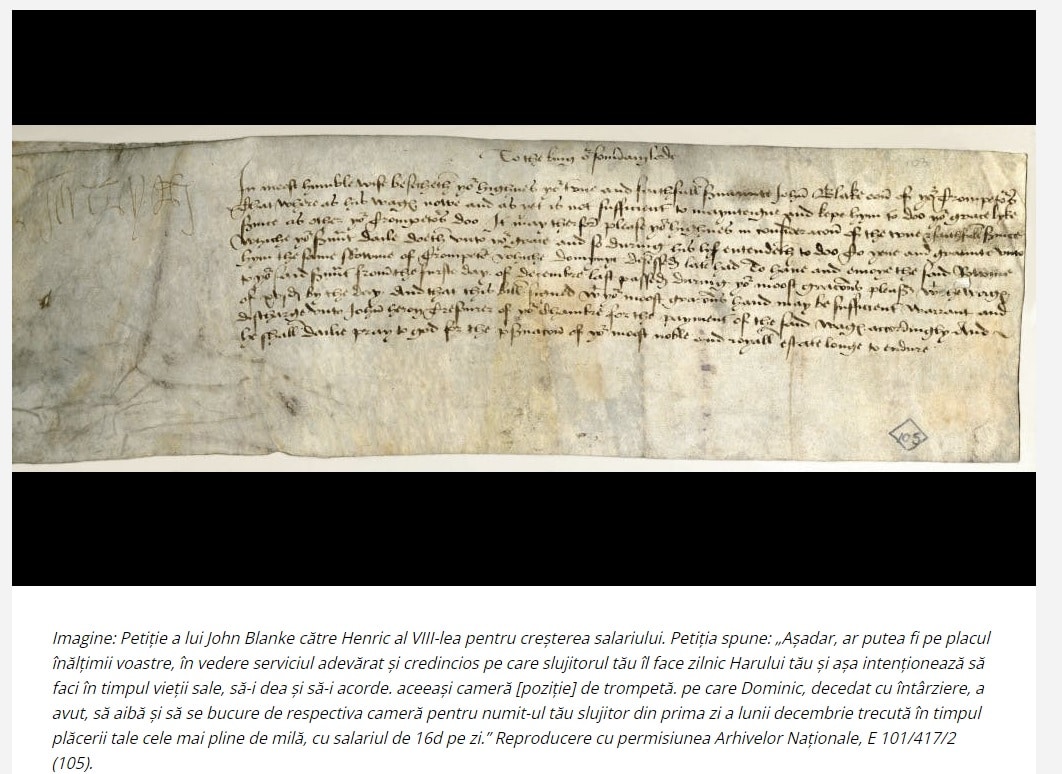 To the king o souaynlorde
In most humble wise besecheth yor highnes yor true and faithfull Srvaunte John Blake oon of yor Trompetes
That where as his wage nowe and as yet is not sufficient to mayntaigne and kepe hym to doo yor grace lyke
Srvice as other yor Trompetes doo It may therfor please yor highnes in consideracon of the true & faithfull Srvice
whiche yor Srvnt daile doeth unto yor grace and so during his lif entendeth to doo to yeve and graunte unto
hym the same Rowme of Trompete whiche Domynyc decessed late had To have and enioye the said Rowme
to yor said Srvnt from the furste day of decembre last passed during yor moost gracious pleasr wt the wage
of by the day And that this bill signed wt yor moost gracious hand may be sufficient warrant and
discharge unto John heron Tresourer of yor Chambre for the payment of the said wage accordingly And
he shall dailie pray to god for the prservacon of yor moost noble and royall estate longe to endure
105
Imagine: Petiție a lui John Blanke către Henric al VIII-lea pentru creșterea salariului. Petiția spune: „Așadar, ar putea fi pe placul
înălțimii voastre, în vedere serviciul adevărat și credincios pe care slujitorul tău îl face zilnic Harului tău și așa intenționează să
faci în timpul vieții sale, să-i dea și să-i acorde. aceeași cameră [poziție] de trompetă. pe care Dominic, decedat cu întârziere, a
avut, să aibă și să se bucure de respectiva cameră pentru numit-ul tău slujitor din prima zi a lunii decembrie trecută în timpul
plăcerii tale cele mai pline de milă, cu salariul de 16d pe zi.” Reproducere cu permisiunea Arhivelor Naționale, E 101/417/2
(105).